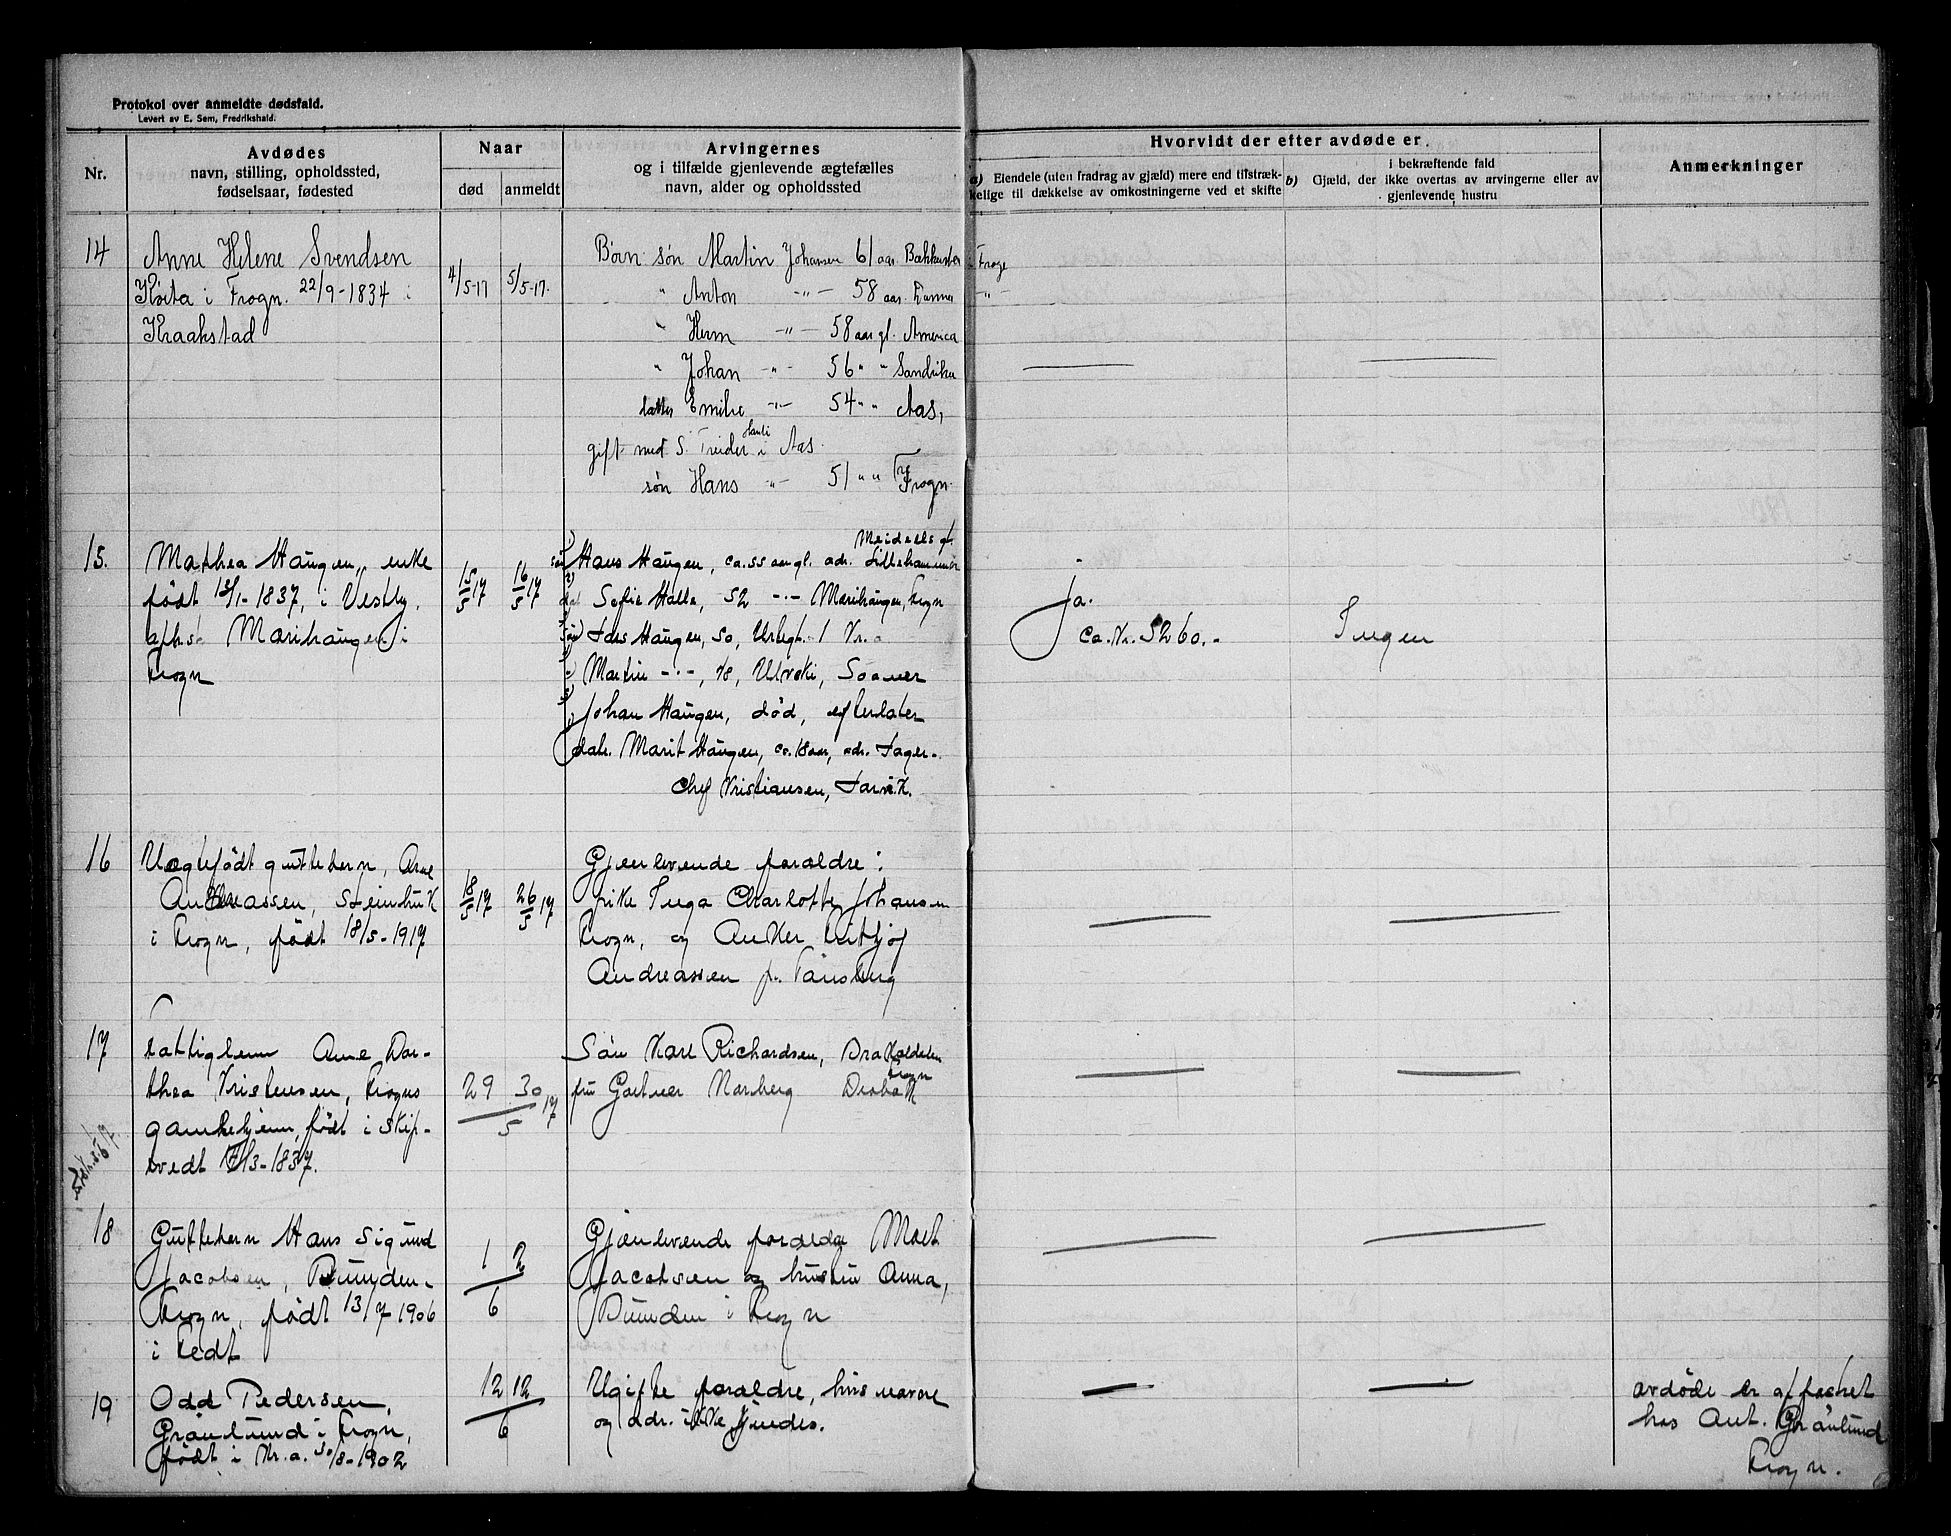 Protokol over anmeldte dødsfald.
Levert av E. Sem, Fredrikshald.
Nr.
Avdødes
navn, stilling, opholdssted,
fødselsaar, fødested
Naar
død
anmeldt
Arvingernes
og i tilfælde gjenlevende ægtefælles
navn, alder og opholdssted
Hvorvidt der efter avdøde er
a) Eiendele (uten fradrag av gjæld) mere end tilstræk-
kelige til dækkelse av omkostningerne ved et skifte
b) i bekræftende fald
Gjæld, der ikke overtas av arvingerne eller av
gjenlevende hustru
Anmerkninger
14
Anne Helene Svendsen
i Frogn. 22/9-1834 i
Kraakstad
4/5-17
5/5-17.
Børn: søn Martin Johansen 61 aar. i Frogn
" Anton -"- 58 aar. -"-
" Herm -"- 58 aar gl. America
" Johan -"- 56 " " Sandviken
datter Emilie -"- 54 " " Aas,
gift med S. i Aas
søn Hans -"- 51 " " Frogn.
15.
Mathea Haugen, enke
født 13/1-1837, i Vestby,
ophs. Marihaugen i
Frogn
15/5 17
16/5 17
1) søn Hans Haugen, ca. 55 aar gl. adr. Lillehammer
2) Sofie Halle, 52 -"- Marihaugen, Frogn
3) søn Lars Haugen, 50, i Kr.a
4) Martin -"-, 48, Sooner
5) Johan Haugen, død, efterlater
datr. Marit Haugen, ca. 18 aar, adr. Lager-
chef Kristiansen, Larvik.
Ja.
ca. Kr. 5260.-
Ingen
16
Uegtefødt guttebarn, Arne
Andreassen,
i Frogn, født 18/5-1917
18/5 17
26/5 17
Gjenlevende forældre:
pike Inga Charlotte Johansen
Frogn, og Anker Fritjof
Andreassen fr. Tønsberg
17
Fattiglem Anne Dor-
thea Kristensen, Frogns
gamlehjem, født i Skip-
tvedt /3-1837.
29 30/5 17
Søn Karl Richardsen,
Frogn
fru Gartner Drøbak
18
Guttebarn Hans Sigurd
Jacobsen,
Frogn, født 13/7 1906
i
1 2/6
Gjenlevende forældre
Jacobsen og hustru Anna,
i Frogn
19
Odd Pedersen,
Grønlund i Frogn,
født i Kr.a. 30/8-1902
12 12/6
Ugifte forældre, hvis navne
og adr. ikke findes.
avdøde er opfostret
hos Ant. Grønlund
Frogn.